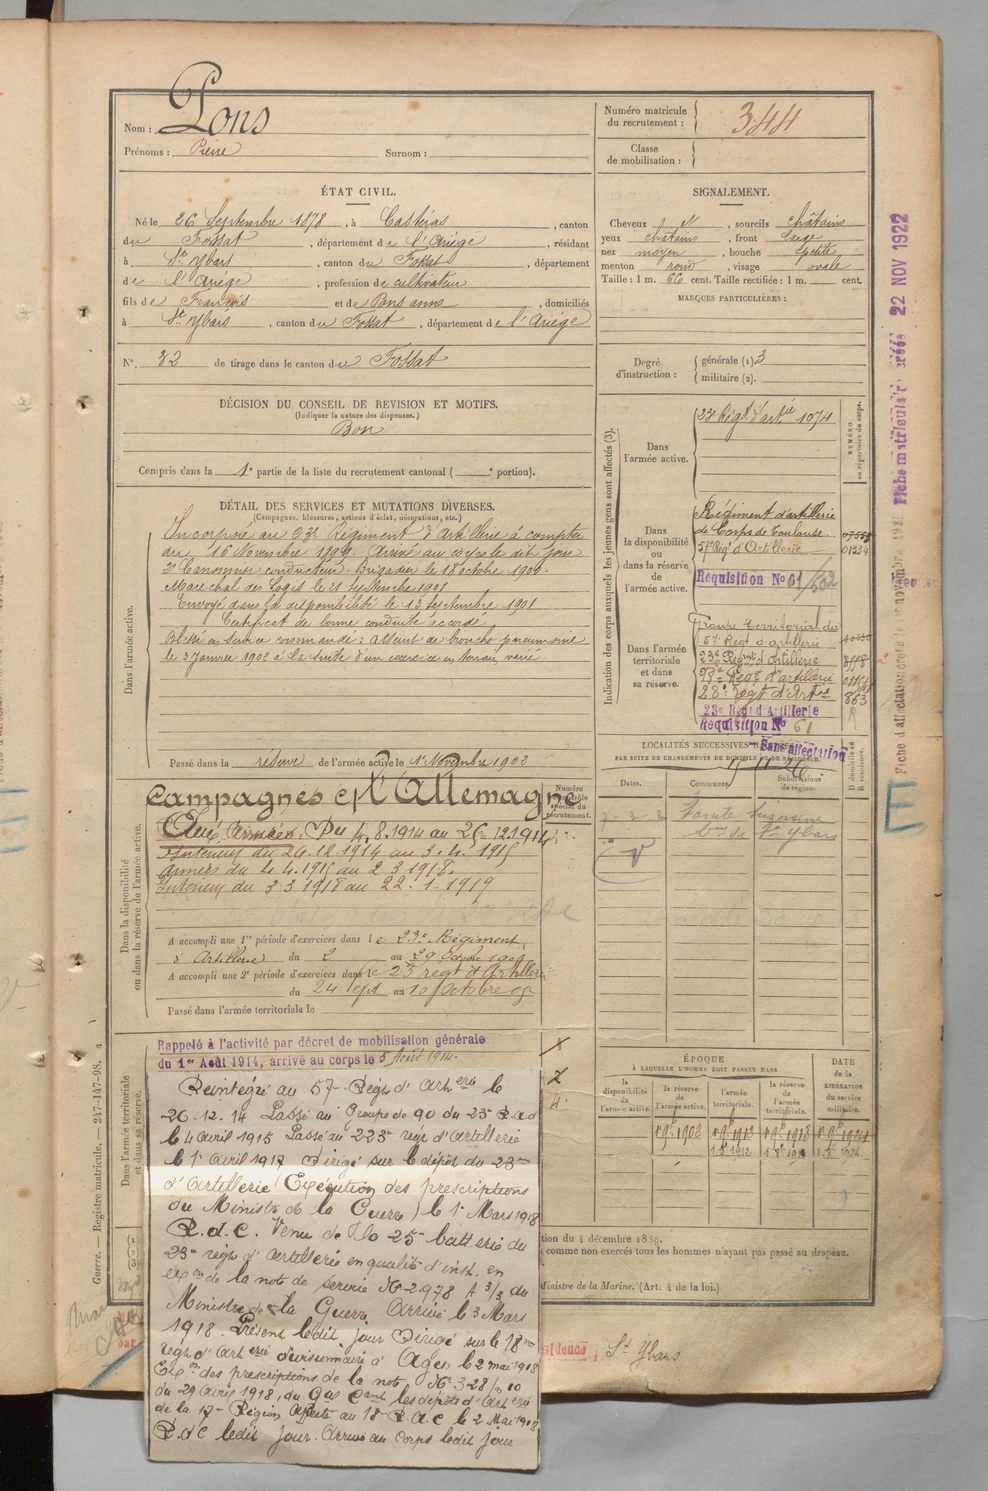 Nom : Pons
Prénoms : Pierre Surnom :
Numéro matricule du recrutement : 344
Classe de mobilisation :
ÉTAT CIVIL.
Né le 26 Septembre 1878, à Castéras, canton
du Fossat, département de l'Ariège, résidant
à St Ybars, canton du Fossat, département
de l'Ariège, profession de cultivateur
fils de François et de Pons anna, domiciliés
à St Ybars, canton du Fossat, département de l'Ariège
No. 32 de tirage dans le canton du Fossat
DÉCISION DU CONSEIL DE REVISION ET MOTIFS.
(Indiquer la nature des dispenses.)
Bon
Compris dans la 1e partie de la liste du recrutement cantonal ( portion).
SIGNALEMENT.
Cheveux , sourcils châtains
yeux châtains, front large
nez moyen, bouche petite
menton rond, visage ovale
Taille : 1 m. 66 cent. Taille rectifiée : 1 m. cent.
MARQUES PARTICULIÈRES :
Degré d'instruction : générale (1) 3
militaire (2).
DÉTAIL DES SERVICES ET MUTATIONS DIVERSES.
(Campagnes, blessures, actions d'éclat, décorations, etc.)
Dans l'armée active.
Incorporé au 23e Régiment d'Artillerie à compter
du 16 Novembre 1899. Arrivé au corps le dit jour
2e Canonnier conducteur. Brigadier le 18 octobre 1900.
Marechal des Logis le 21 septembre 1901
Envoyé dans la disponibilité le 13 septembre 1901
Certificat de bonne conduite accordé
Blessé en service commandé : atteint de broncho pneumonie
le 3 Janvier 1902 à la suite d'un exercice en terrain varié
Passé dans la réserve de l'armée active le 1er Novembre 1902
Indication des corps auxquels les jeunes gens sont affectés (3).
NUMÉRO au répertoire du corps.
Dans l'armée active.
23e Régt d'artie 1074
Dans la disponibilité ou dans la réserve de l'armée active.
Régiment d'artillerie
de Corps de Toulouse.
57e Régt d'Artillerie 01234
Réquisition No 61/502
Dans l'armée territoriale et dans sa réserve.
Groupe territorial du
57e Régt d'artillerie
23e Régmt d'Artillerie
18e Régt d'artillerie
28e Régt d'Artie 863
23e Régt d'Artillerie
Réquisition No 61
Sans affectation
22 NOV 1922
LOCALITÉS SUCCESSIVES
PAR SUITE DE CHANGEMENTS DE DOMICILE OU DE RÉSIDENCE.
Dates. Communes. Subdivisions de région. D domicile ou R résidence.
Sainte Suzanne
Dans la disponibilité ou dans la réserve de l'armée active.
Campagnes c/ l'Allemagne
Aux Armées. Du 4.8.1914 au 25.12.1914
Intérieur du 26.12.1914 au 3.4.1915
armées du 4.4.1915 au 2 3 1918.
Intérieur du 3 3 1918 au 22.1.1919
A accompli une 1re période d'exercices dans le 23e Régiment
d'Artillerie du 2 au 29 Octobre
A accompli une 2e période d'exercices dans le 23 regt d'Artillerie
du 24 sept au 10 Octobre
Passé dans l'armée territoriale le
Dans l'armée territoriale et dans sa réserve.
Rappelé à l'activité par décret de mobilisation générale
du 1er Août 1914, arrivé au corps le 5 Août 1914.
Réintégré au 57e Régt d'Artrie le
26.12.14 Passé au Groupe de 90 du 23e R.a.d
le 4 avril 1915 Passé au 223e régt d'Artillerie
le 1e avril 1917 Dirigé sur le dépôt du 23e
d'artillerie (Exécution des prescriptions
du Ministre de la Guerre) le 1e Mars 1918
R.d.C. Venu de Do 25e batterie du
23e régt d'artillerie en qualité d'inst. en
exon de la note de service No 2978 A 3/3 du
Ministre de la Guerre. Arrivé le 3 Mars
1918. Présent ledit jour Dirigé sur le 18e
régt d'Artrie divisionnaire à Agen le 2 mai 1918
Exon des prescriptions de la note No 328/ 10
du 29 avril 1918, du Gal Cant les dépôts d'Artrie
de la 17e Région Affecté au 18e R.a.c le 2 Mai 1918
R.d.C ledit jour. Arrivé au corps ledit jour
ÉPOQUE
À LAQUELLE L'HOMME DOIT PASSER DANS
la disponibilité de l'armée active. la réserve de l'armée active. l'armée territoriale. la réserve de l'armée territoriale.
DATE de la LIBÉRATION du service militaire.
tion du 4 décembre 1889.
i comme non exercés tous les hommes n'ayant pas passé au drapeau.
Ministre de la Marine. (Art. 4 de la loi.)
Guerre. — Registre matricule. — 247-147-98.
sidence St Ybars